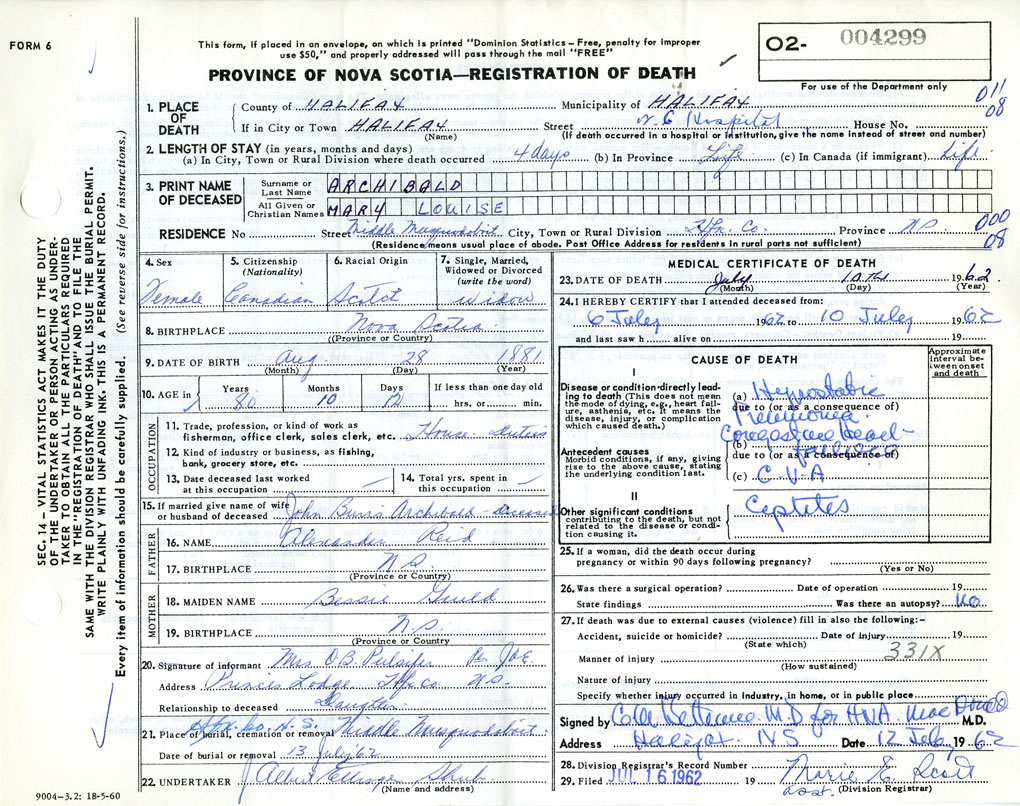 FORM 6
This form, if placed in an envelope, on which is printed "Dominion Statistics – Free, penalty for improper
use $50," and properly addressed will pass through the mail "FREE"
O2- 004299
For use of the Department only
PROVINCE OF NOVA SCOTIA—REGISTRATION OF DEATH
011
08
1. PLACE OF DEATH County of HALIFAX Municipality of HALIFAX
If in City or Town HALIFAX Street V. G. Hospital House No.
(Name) (If death occurred in a hospital or institution, give the name instead of street and number)
2. LENGTH OF STAY (in years, months and days)
(a) In City, Town or Rural Division where death occurred 4 days (b) In Province Life (c) In Canada (if immigrant) Life
3. PRINT NAME OF DECEASED
Surname or Last Name ARCHIBALD
All Given or Christian Names MARY LOUISE
RESIDENCE No Street Middle Musquodoboit City, Town or Rural Division Hfx. Co. Province N S
000
08
(Residence means usual place of abode. Post Office Address for residents in rural parts not sufficient)
SEC. 14 —VITAL STATISTICS ACT MAKES IT THE DUTY
OF THE UNDERTAKER OR PERSON ACTING AS UNDER-
TAKER TO OBTAIN ALL THE PARTICULARS REQUIRED
IN THE "REGISTRATION OF DEATH" AND TO FILE THE
SAME WITH THE DIVISION REGISTRAR WHO SHALL ISSUE THE BURIAL PERMIT.
WRITE PLAINLY WITH UNFADING INK. THIS IS A PERMANENT RECORD.
Every item of information should be carefully supplied. (See reverse side for instructions.)
4. Sex Female
5. Citizenship (Nationality) Canadian
6. Racial Origin Scotch
7. Single, Married, Widowed or Divorced (write the word) widow
8. BIRTHPLACE Nova Scotia
(Province or Country)
9. DATE OF BIRTH Aug 28 1881
(Month) (Day) (Year)
10. AGE in Years 80 Months 10 Days 12 If less than one day old hrs. or min.
OCCUPATION
11. Trade, profession, or kind of work as
fisherman, office clerk, sales clerk, etc. House duties
12. Kind of industry or business, as fishing,
bank, grocery store, etc. —
13. Date deceased last worked at this occupation
14. Total yrs. spent in this occupation
15. If married give name of wife
or husband of deceased John Burris Archibald - deceased
FATHER
16. NAME Alexander Reid
17. BIRTHPLACE N S.
(Province or Country)
MOTHER
18. MAIDEN NAME Bessie Guild
19. BIRTHPLACE N S.
(Province or Country)
20. Signature of informant Mrs O.B. Pulsifer Per J.O.E.
Address Princes Lodge Hfx Co N.S.
Relationship to deceased Daughter
Hfx. Co. N.S.
21. Place of burial, cremation or removal Middle Musquodoboit
Date of burial or removal 13 July '62
22. UNDERTAKER Albert Ettinger Shub
(Name and address)
9004-3.2: 18-5-60
MEDICAL CERTIFICATE OF DEATH
23. DATE OF DEATH July 10th 1962
(Month) (Day) (Year)
24. I HEREBY CERTIFY that I attended deceased from:
6 July 1962 to 10 July 1962
and last saw h alive on 19
CAUSE OF DEATH
Approximate interval between onset and death
I
Disease or condition directly lead-
ing to death (This does not mean
the mode of dying, e.g., heart fail-
ure, asthenia, etc. It means the
disease, injury, or complication
which caused death.)
(a) Hypostatic
due to (or as a consequence of)
Pneumonia
Congestive Heart
(b) failure
due to (or as a consequence of)
(c) C.V.A
Antecedent causes
Morbid conditions, if any, giving
rise to the above cause, stating
the underlying condition last.
II
Other significant conditions
contributing to the death, but not
related to the disease or condi-
tion causing it.
25. If a woman, did the death occur during
pregnancy or within 90 days following pregnancy?
(Yes or No)
26. Was there a surgical operation? Date of operation 19
State findings Was there an autopsy? No
27. If death was due to external causes (violence) fill in also the following:-
Accident, suicide or homicide? Date of injury 19
(State which)
331X
Manner of injury
(How sustained)
Nature of injury
Specify whether injury occurred in industry, in home, or in public place
Signed by M.D for H.N.A. MacDonald M.D.
Address Halifax. N S Date 12 July 1962
28. Division Registrar's Record Number
29. Filed JUL 16 1962 19 Marie E. Scott
asst. (Division Registrar)